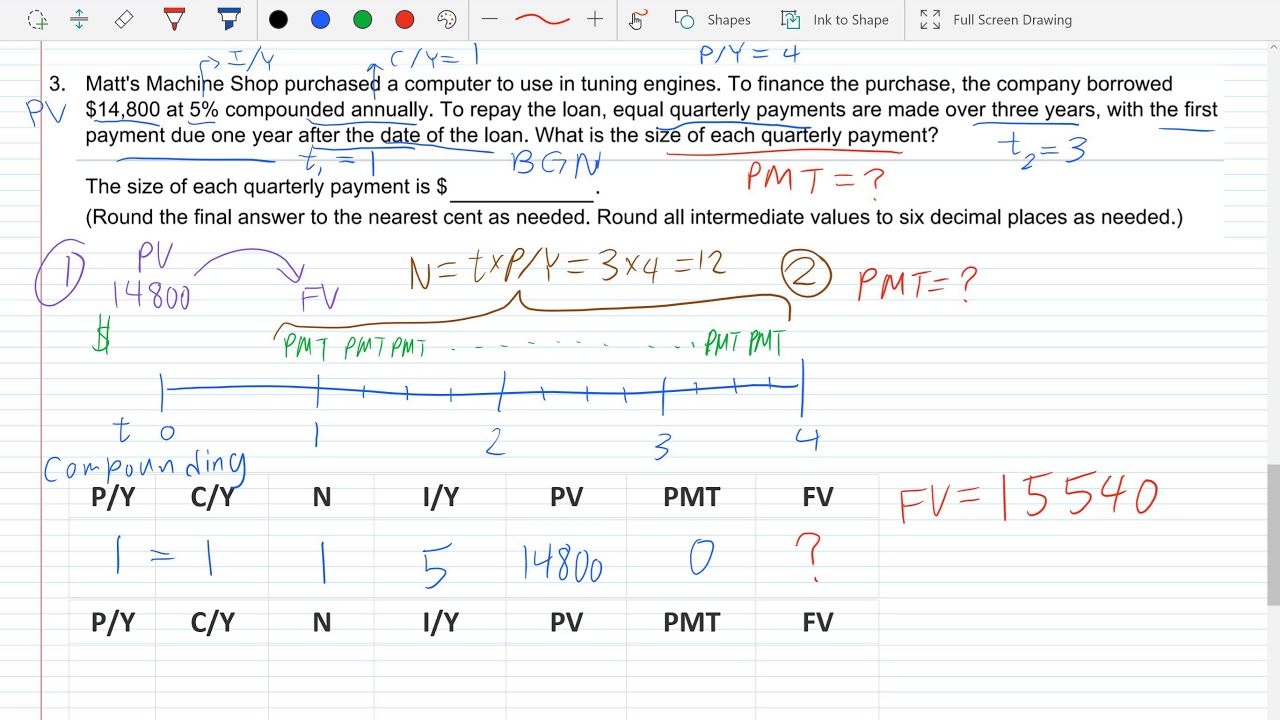 Shapes Ink to Shape Full Screen Drawing
I/Y C/Y = 1 P/Y = 4
3. Matt's Machine Shop purchased a computer to use in tuning engines. To finance the purchase, the company borrowed
PV $14,800 at 5% compounded annually. To repay the loan, equal quarterly payments are made over three years, with the first
payment due one year after the date of the loan. What is the size of each quarterly payment?
t₁ = 1 BGN PMT = ? t₂ = 3
The size of each quarterly payment is $ .
(Round the final answer to the nearest cent as needed. Round all intermediate values to six decimal places as needed.)
1 PV N = t×P/Y = 3×4 = 12 2 PMT = ?
14800 FV
$ PMT PMT PMT . - - . - - . . . PMT PMT
t 0 1 2 3 4
Compounding
P/Y C/Y N I/Y PV PMT FV FV = 15540
1 = 1 1 5 14800 0 ?
P/Y C/Y N I/Y PV PMT FV